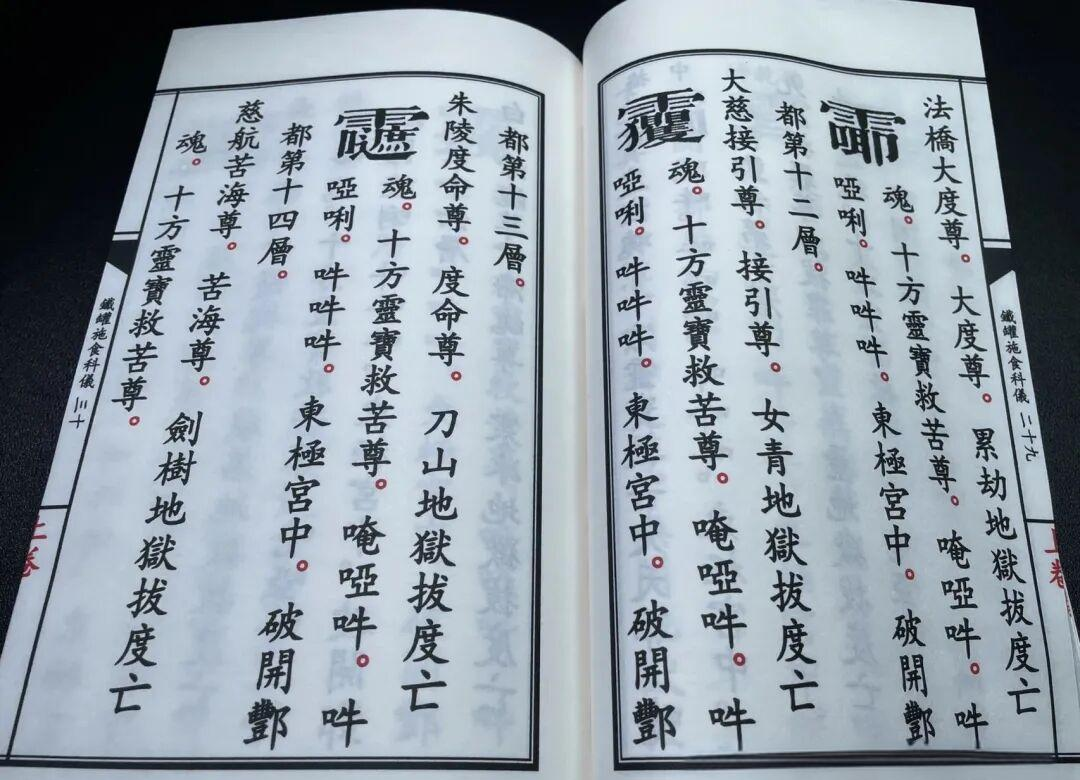 法橋大度尊。大度尊。累劫地獄拔度亡
魂。十方靈寶救苦尊。唵啞吽。吽
啞唎。吽吽吽。東極宮中。破開酆
都第十二層。
大慈接引尊。接引尊。女青地獄拔度亡
魂。十方靈寶救苦尊。唵啞吽。吽
啞唎。吽吽吽。東極宮中。破開酆
鐵罐施食科儀 二十九
上卷
都第十三層。
朱陵度命尊。度命尊。刀山地獄拔度亡
魂。十方靈寶救苦尊。唵啞吽。吽
啞唎。吽吽吽。東極宮中。破開酆
都第十四層。
慈航苦海尊。苦海尊。劍樹地獄拔度亡
魂。十方靈寶救苦尊。
鐵罐施食科儀 三十
上卷